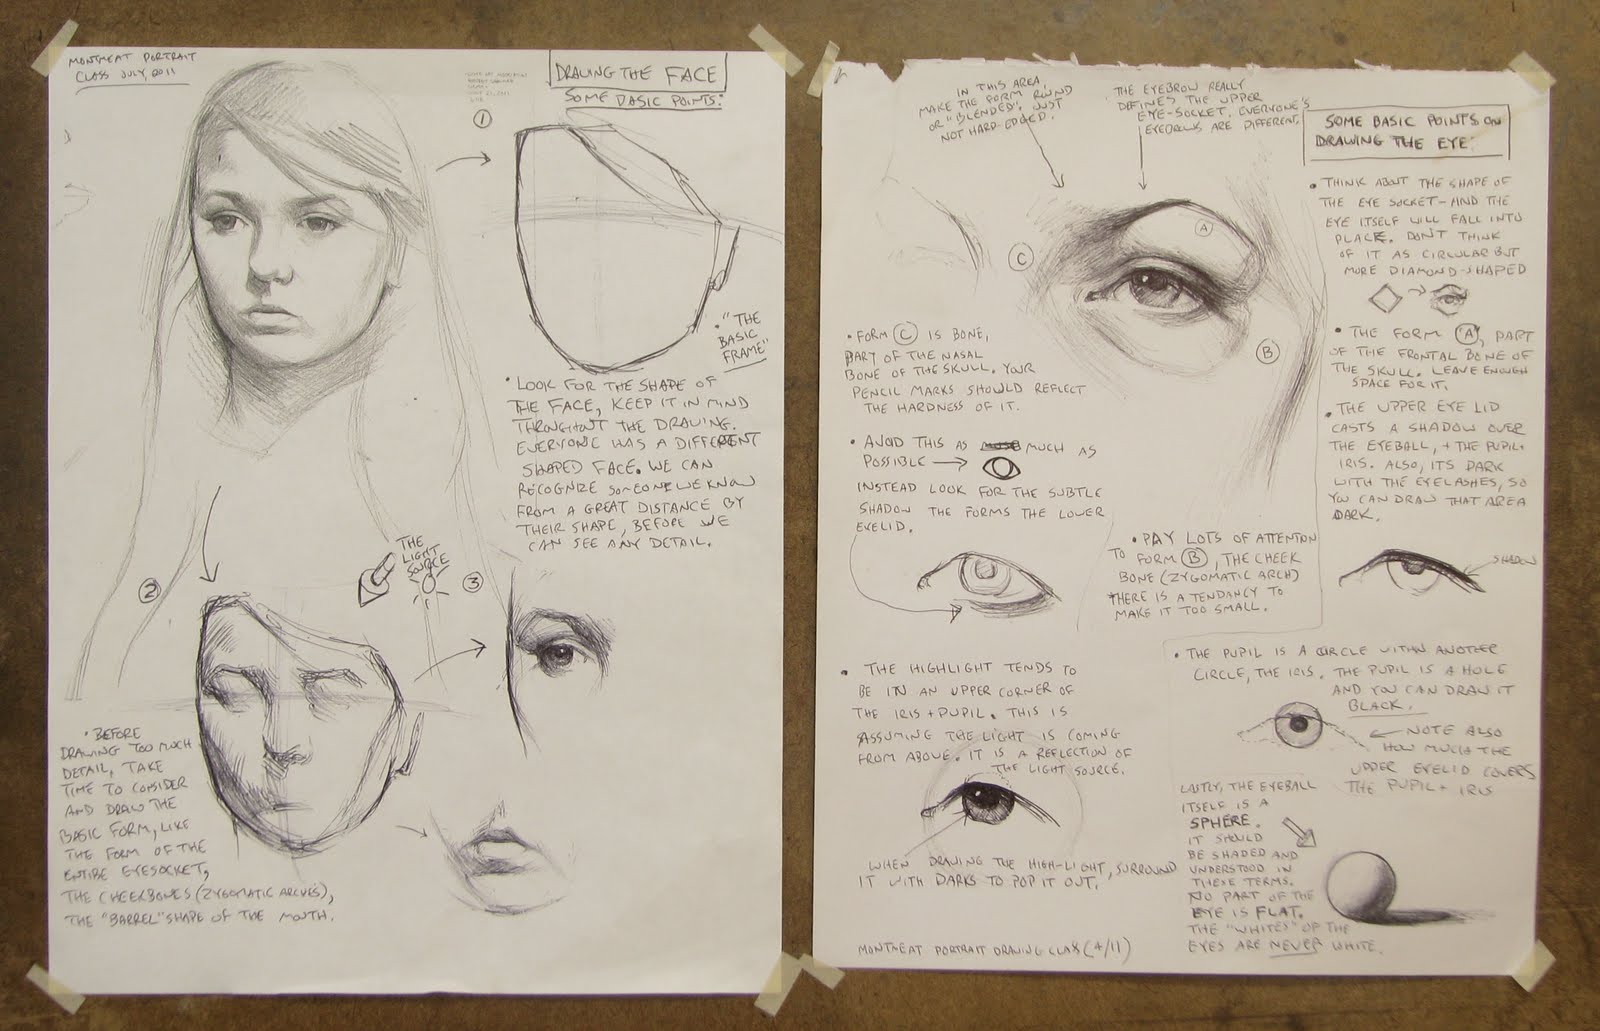 MONTMEAT PORTRAIT
CLASS JULY, 2011
DRAWING THE FACE
SOME BASIC POINTS:
1
• "THE
BASIC
FRAME"
• LOOK FOR THE SHAPE OF
THE FACE, KEEP IT IN MIND
THROUGHOUT THE DRAWING.
EVERYONE HAS A DIFFERENT
SHAPED FACE. WE CAN
RECOGNIZE SOMEONE WE KNOW
FROM A GREAT DISTANCE BY
THEIR SHAPE, BEFORE WE
CAN SEE ANY DETAIL.
2
THE
LIGHT
SOURCE
3
• BEFORE
DRAWING TOO MUCH
DETAIL, TAKE
TIME TO CONSIDER
AND DRAW THE
BASIC FORM, LIKE
THE FORM OF THE
ENTIRE EYESOCKET,
THE CHEEKBONES (ZYGOMATIC ARCHES),
THE "BARREL" SHAPE OF THE MOUTH.
IN THIS AREA
MAKE THE FORM ROUND
OR "BLENDED", JUST
NOT HARD-EDGED.
THE EYEBROW REALLY
DEFINES THE UPPER
EYE-SOCKET. EVERYONE'S
EYEBROWS ARE DIFFERENT.
SOME BASIC POINTS ON
DRAWING THE EYE:
• THINK ABOUT THE SHAPE OF
THE EYE SOCKET - AND THE
EYE ITSELF WILL FALL INTO
PLACE. DON'T THINK
OF IT AS CIRCULAR BUT
MORE DIAMOND-SHAPED
A
C
B
• FORM C IS BONE,
PART OF THE NASAL
BONE OF THE SKULL. YOUR
PENCIL MARKS SHOULD REFLECT
THE HARDNESS OF IT.
• THE FORM A, PART
OF THE FRONTAL BONE OF
THE SKULL. LEAVE ENOUGH
SPACE FOR IT.
• THE UPPER EYE LID
CASTS A SHADOW OVER
THE EYEBALL, + THE PUPIL +
IRIS. ALSO, ITS DARK
WITH THE EYELASHES, SO
YOU CAN DRAW THAT AREA
DARK.
SHADOW
• AVOID THIS AS MUCH AS
POSSIBLE
INSTEAD LOOK FOR THE SUBTLE
SHADOW THE FORMS THE LOWER
EYELID.
• PAY LOTS OF ATTENTION
TO FORM B, THE CHEEK
BONE (ZYGOMATIC ARCH)
THERE IS A TENDANCY TO
MAKE IT TOO SMALL.
• THE HIGHLIGHT TENDS TO
BE IN AN UPPER CORNER OF
THE IRIS + PUPIL. THIS IS
ASSUMING THE LIGHT IS COMING
FROM ABOVE. IT IS A REFLECTION OF
THE LIGHT SOURCE.
WHEN DRAWING THE HIGH-LIGHT, SURROUND
IT WITH DARKS TO POP IT OUT.
• THE PUPIL IS A CIRCLE WITHIN ANOTHER
CIRCLE, THE IRIS. THE PUPIL IS A HOLE
AND YOU CAN DRAW IT
BLACK.
NOTE ALSO
HOW MUCH THE
UPPER EYELID COVERS
THE PUPIL + IRIS
LASTLY, THE EYEBALL
ITSELF IS A
SPHERE.
IT SHOULD
BE SHADED AND
UNDERSTOOD IN
THESE TERMS.
NO PART OF THE
EYE IS FLAT.
THE "WHITES" OF THE
EYES ARE NEVER WHITE.
MONTMEAT PORTRAIT DRAWING CLASS (4/11)